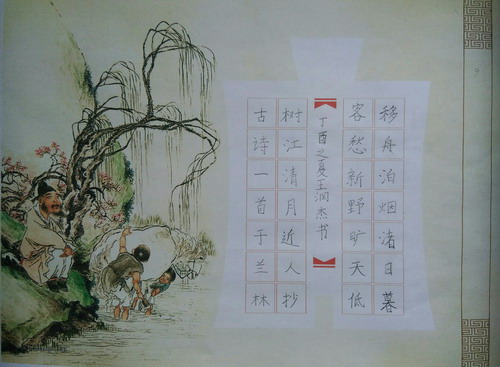 移舟泊烟渚日暮
客愁新野旷天低
树江清月近人抄
古诗一首于兰林
丁酉之夏王润杰书